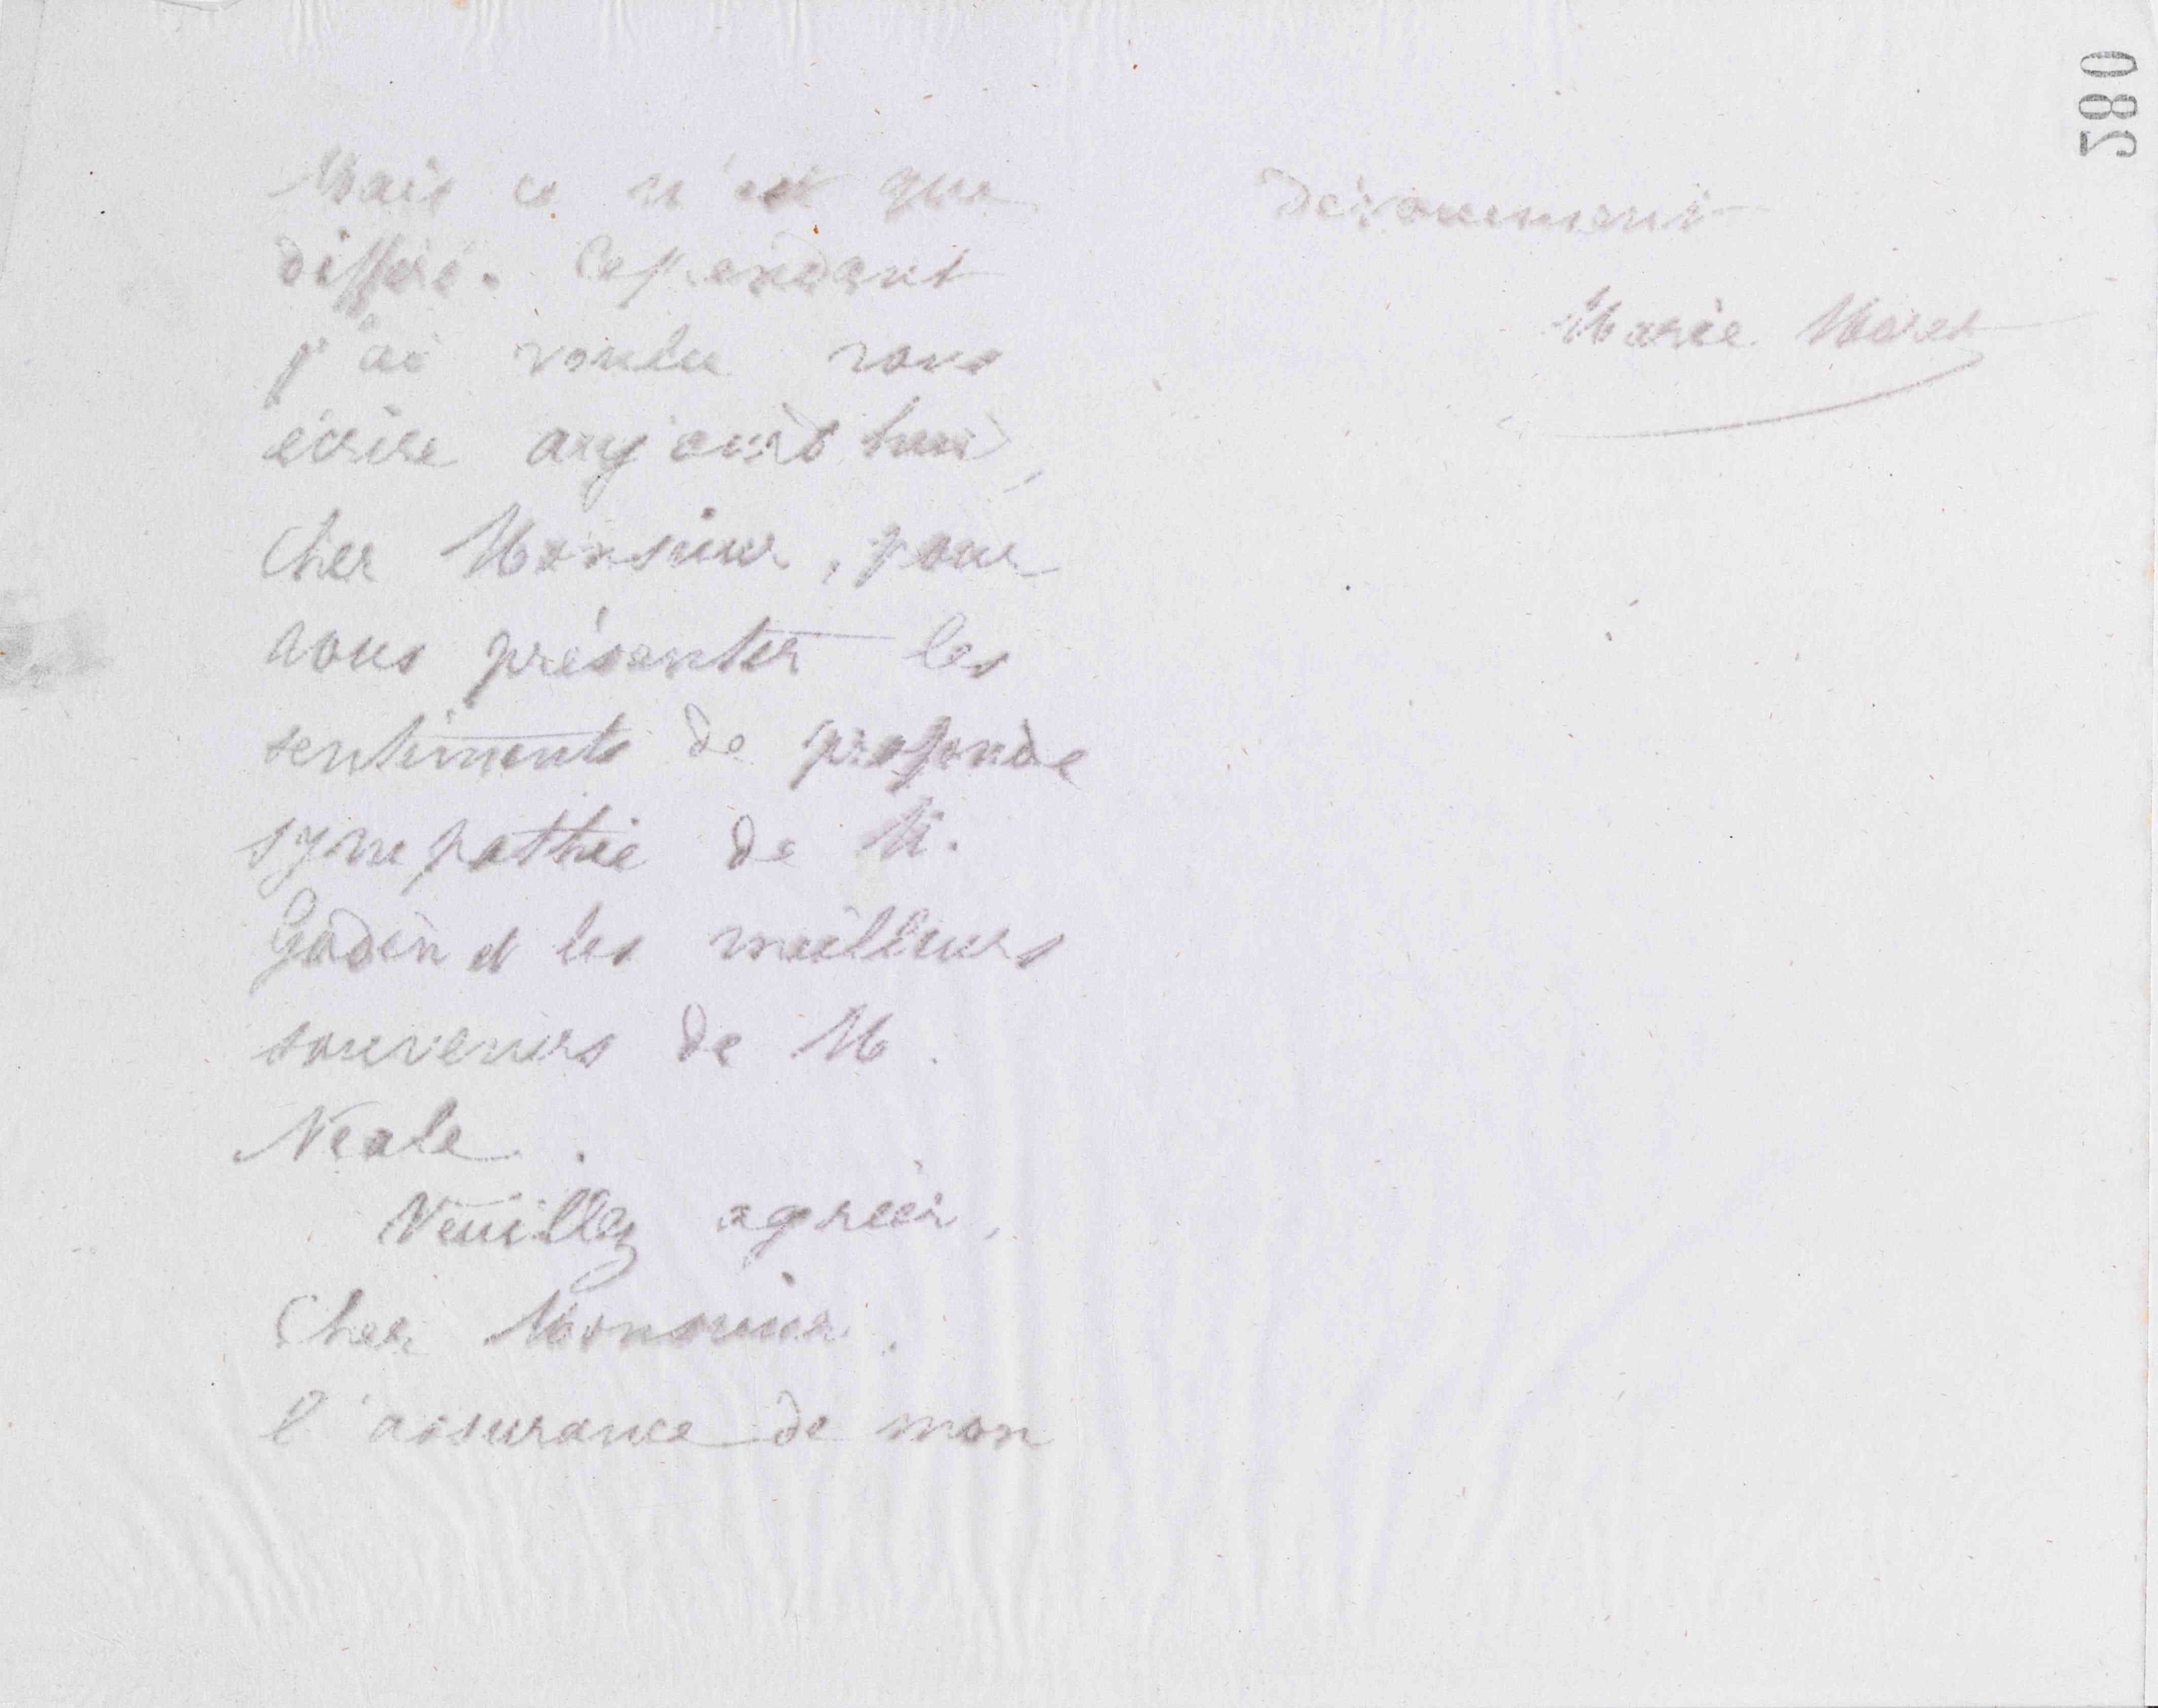 280
Mais ce n'est que
différé. Cependant
j'ai voulu vous
écrire aujourd'hui,
cher Monsieur, pour
vous présenter les
sentiments de profonde
sympathie de M.
Godin et les meilleurs
souvenirs de M.
Neale.
Veuillez agréer,
Cher Monsieur,
l'assurance de mon
dévouement
Marie Moret